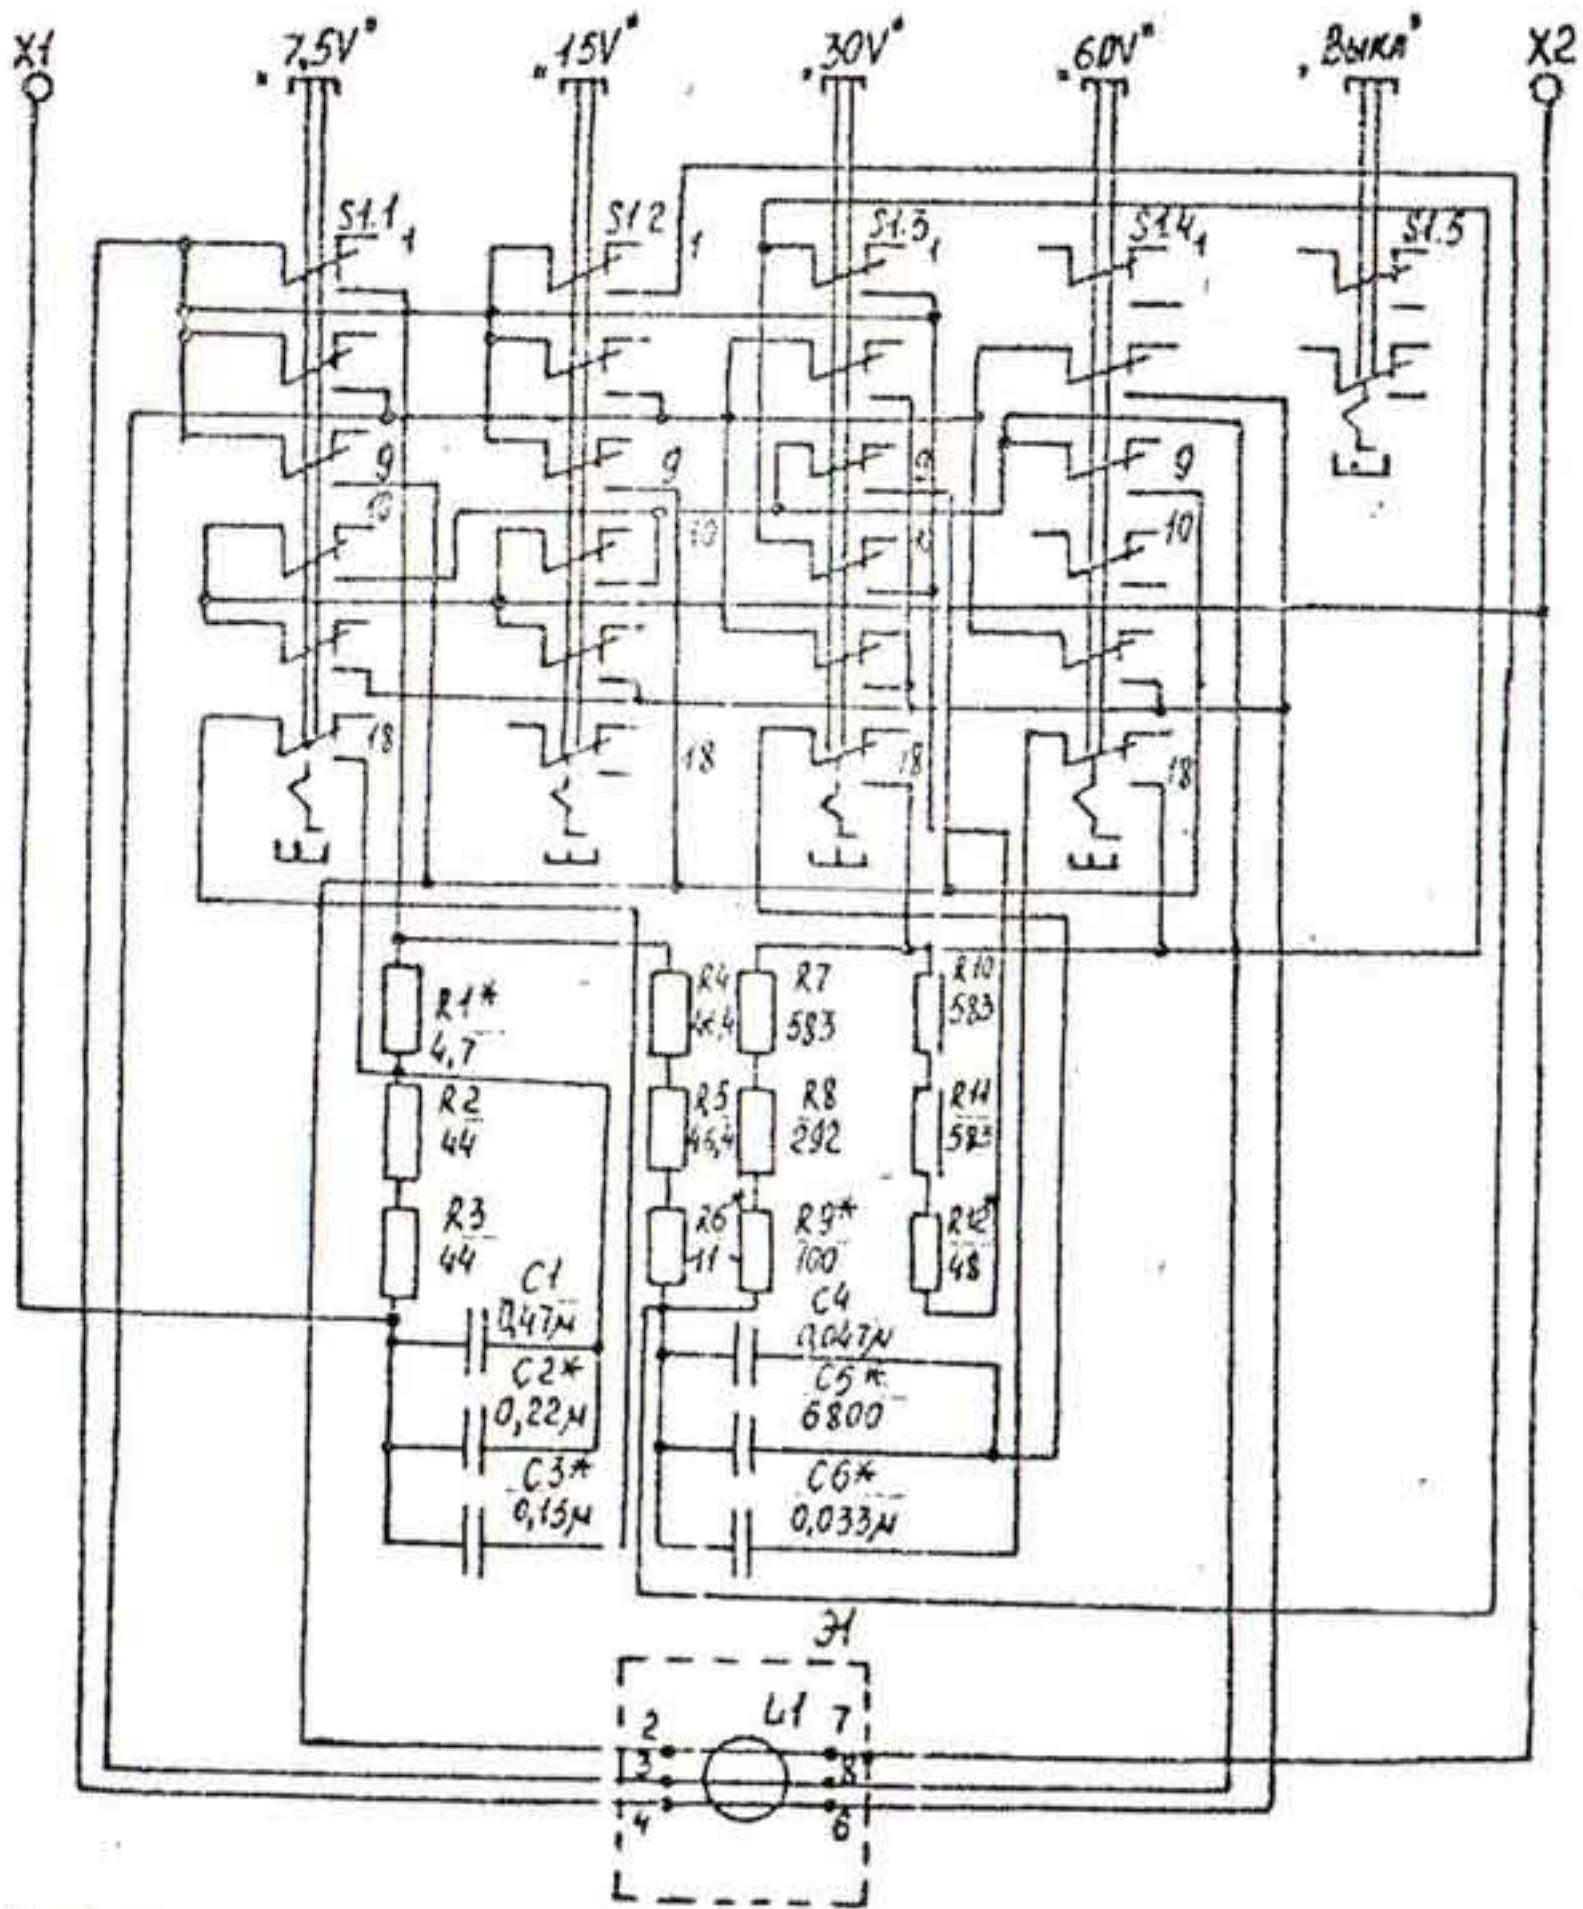 X1
"7,5V"
"15V"
"30V"
"60V"
"Выкл"
X2
S1.1
1
S1.2
1
S1.3
1
S1.4
1
S1.5
9
9
9
10
10
10
18
18
18
18
R1*
4,7
R2
44
R3
44
R4
R5
46,4
R6
11
R7
583
R8
292
R9*
100
R10
583
R11
583
R12
48
C1
0,47м
C2*
0,22м
C3*
0,15м
C4
0,047м
C5*
6800
C6*
0,033м
Э1
L1
2
7
3
8
4
6